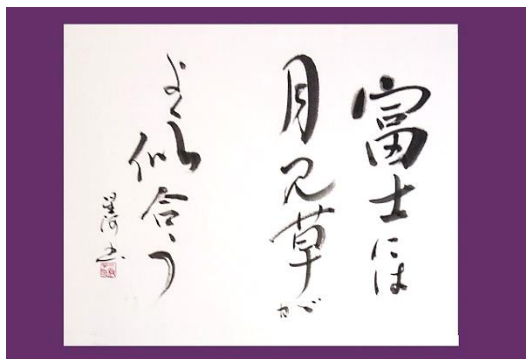 富士には
月見草が
よく似合う